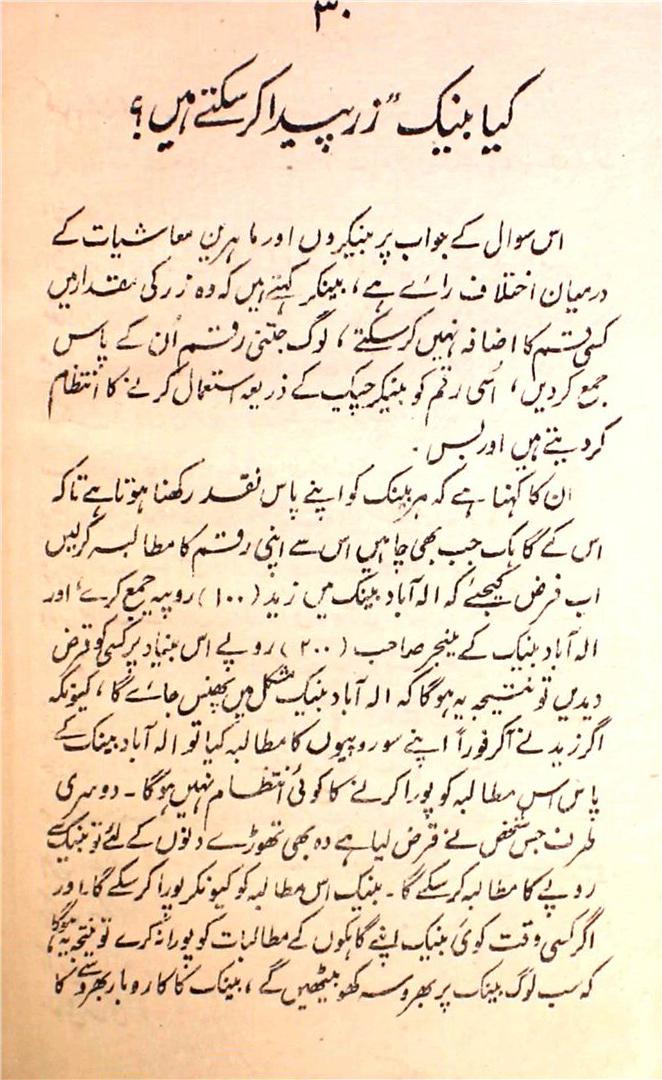 ۳۰
کیا بینک "زر پیدا کر سکتے ہیں؟
اس سوال کے جواب پر بینکروں اور ماہرین معاشیات کے
درمیان اختلاف رائے ہے، بینکر کہتے ہیں کہ وہ زر کی مقدار میں
کسی قسم کا اضافہ نہیں کر سکتے، لوگ جتنی رقم اُن کے پاس
جمع کر دیں، اُسی رقم کو بینکر چیک کے ذریعہ استعمال کرنے کا انتظام
کر دیتے ہیں اور بس۔
ان کا کہنا ہے کہ ہر بینک کو اپنے پاس نقد رکھنا ہوتا ہے تاکہ
اس کے گاہک جب بھی چاہیں اس سے اپنی رقم کا مطالبہ کر لیں
اب فرض کیجئے کہ الہ آباد بینک میں زید (۱۰۰) روپیہ جمع کرے، اور
الہ آباد بینک کے مینجر صاحب (۲۰۰) روپے اس بنیاد پر کسی کو قرض
دیدیں تو نتیجہ یہ ہو گا کہ الہ آباد بینک مشکل میں پھنس جائے گا، کیونکہ
اگر زید نے آکر فوراً اپنے سو روپیوں کا مطالبہ کیا تو الہ آباد بینک کے
پاس اس مطالبہ کو پورا کرنے کا کوئی انتظام نہیں ہو گا۔ دوسری
طرف جس شخص نے قرض لیا ہے وہ بھی تھوڑے دنوں کے لئے تو بینک سے
روپے کا مطالبہ کر سکے گا۔ بینک اس مطالبہ کو کیونکر پورا کر سکے گا۔ اور
اگر کسی وقت کوئی بینک اپنے گاہکوں کے مطالبات کو پورا نہ کرے تو نتیجہ یہ ہوگا
کہ سب لوگ بینک پر بھروسہ کھو بیٹھیں گے، بینک کا کاروبار بھروسے کا